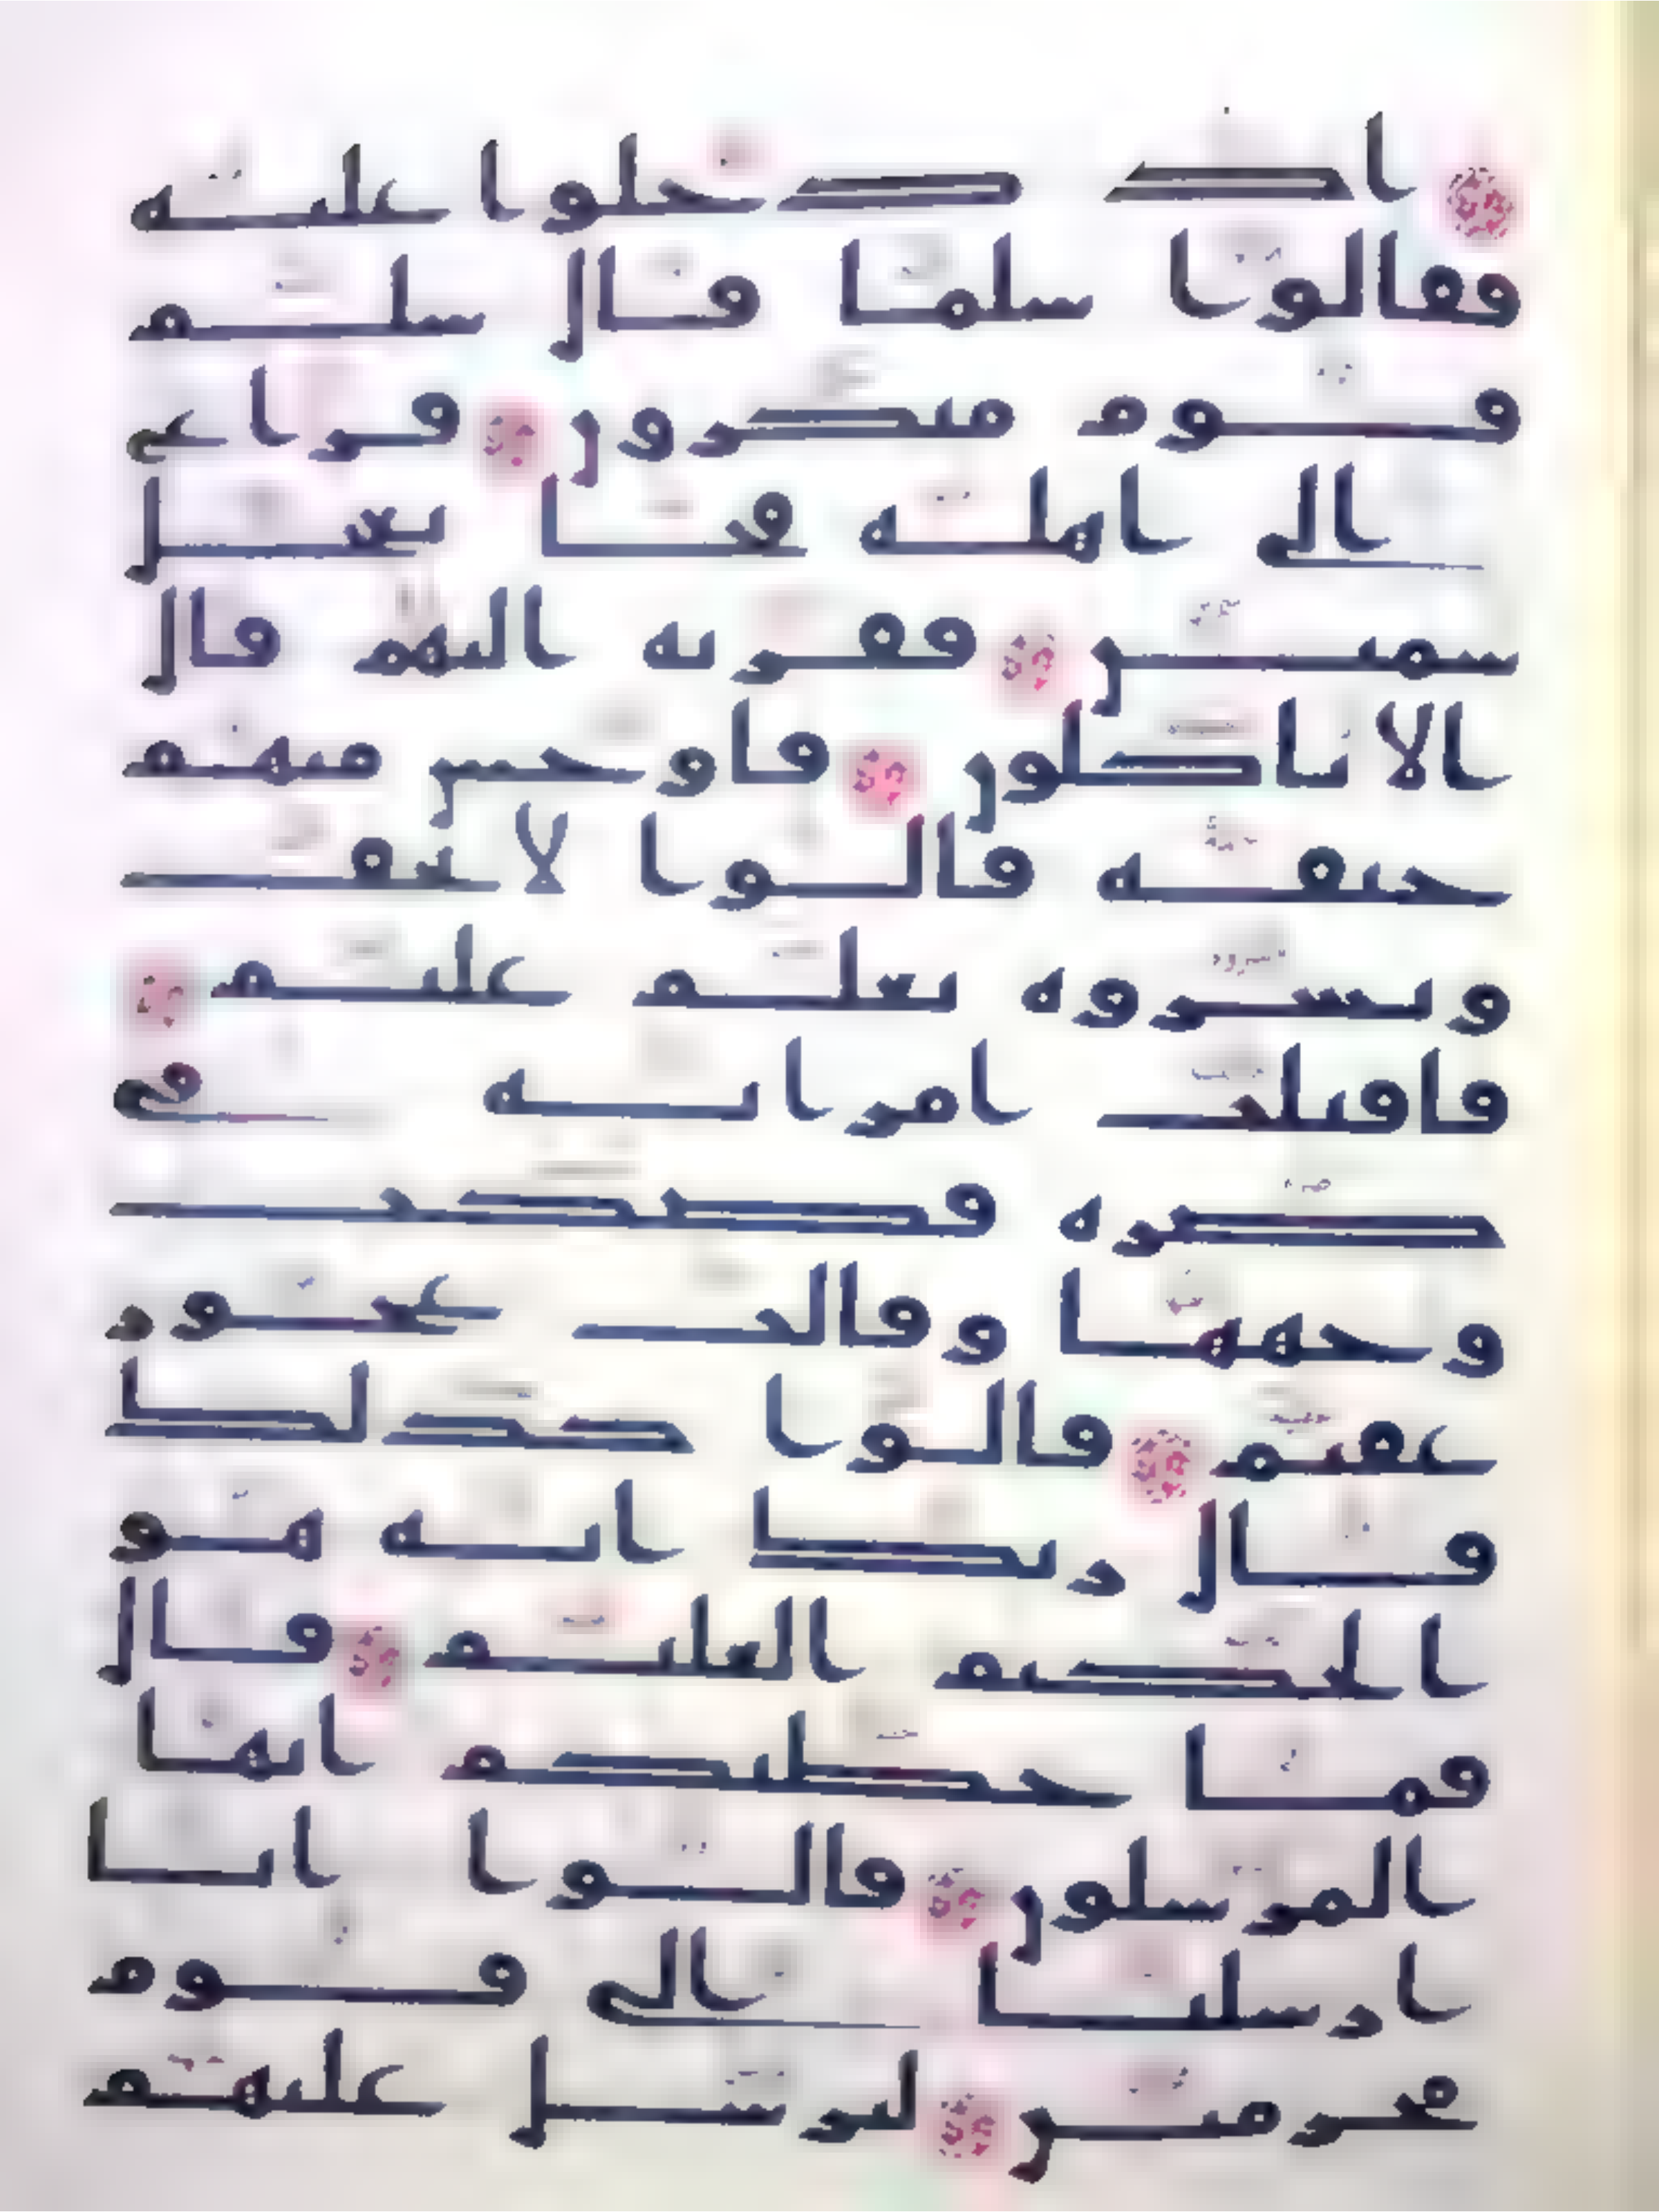 اذ دخلوا عليه
فقالوا سلما قال سلم
قوم منكرون فراغ
الى اهله فجا بعجل
سمين فقربه اليهم قال
الا تاكلون فاوجس منهم
خيفه قالوا لا تخف
وبشروه بغلم عليم
فاقبلت امراته في
صره فصكت
وجهها وقالت عجوز
عقيم قالوا كذلك
قال ربك انه هو
الحكيم العليم قال
فما خطبكم ايها
المرسلون قالوا انا
ارسلنا الى قوم
مجرمين لنرسل عليهم